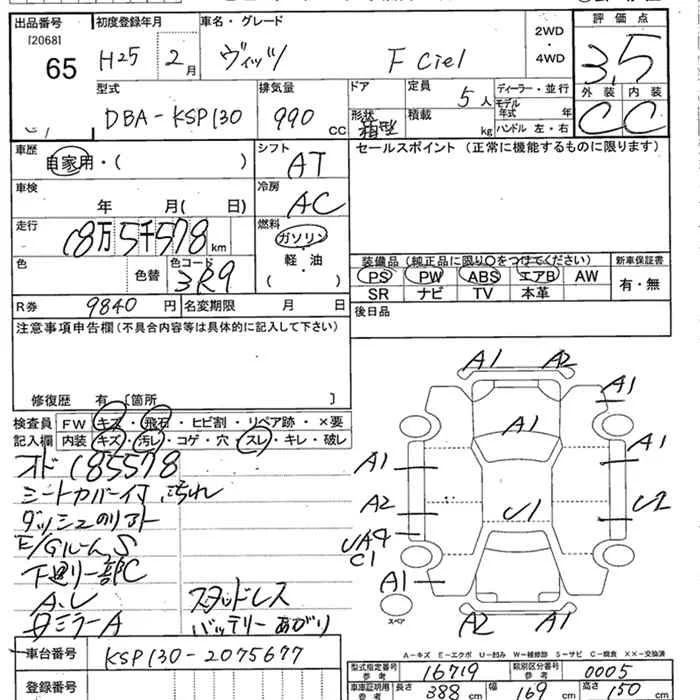 出品番号 初度登録年月 車名・グレード 評価点
[2068] 65 H25 2月 ヴィッツ F ciel 2WD・4WD 3.5
型式 排気量 ドア 定員 ディーラー・並行 外装 内装
DBA-KSP130 990 CC 形状 箱型 積載 kg 5人 モデル年式 年 ハンドル 左・右 C C
車歴 自家用・( ) シフト AT セールスポイント (正常に機能するものに限ります)
車検 年 月( 日) 冷房 AC
走行 18万5千578km 燃料 ガソリン 軽・油 ( )
色 色替 色コード 3R9 装備品 (純正品に限り○をつけてください) 新車保証書
PS PW ABS エアB AW 有・無
SR ナビ TV 本革
R券 9840円 名変期限 月 日 後日品
注意事項申告欄(不具合内容等は具体的に記入して下さい)
修復歴 有 [箇所 ]
検査員 FW キズ・飛石・ヒビ割・リペア跡・×要
記入欄 内装 キズ・汚レ・コゲ・穴・スレ・キレ・破レ
オド 185578
シートカバー付 汚れ
ダッシュのリアト
E/Gルーム S
下廻り一部C
A.レ スタッドレス
Bミラー A バッテリーあがり
A1 A2
A1
A1
A1 A1
A2 U1
UA4
C1
A1
A2 A1
スペア
A-キズ E-エクボ U-凹み W-補修跡 S-サビ C-腐食 XX-交換済
車台番号 KSP130-2075677
登録番号
型式指定番号 参考 16719 類別区分番号 参考 0005
車庫証明用 参考 長さ 388 cm 幅 169 cm 高さ 150 cm